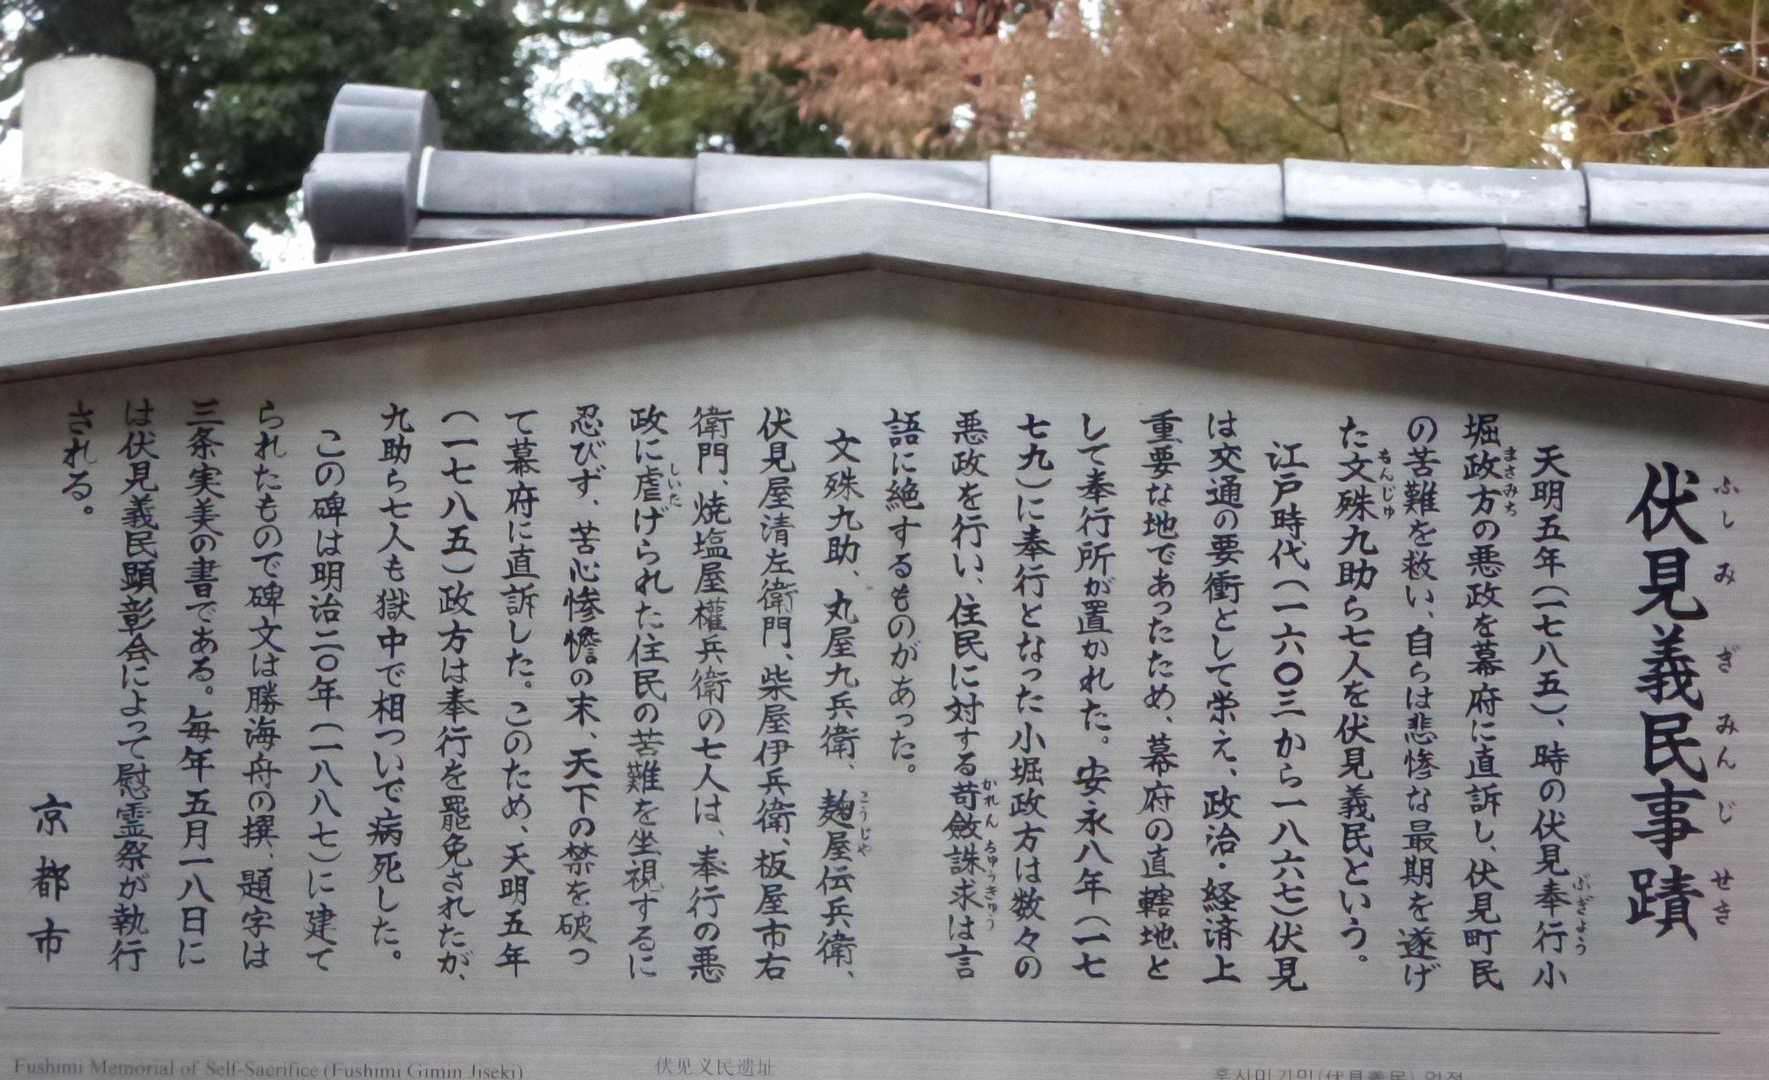 伏見義民事蹟
ふしみぎみんじせき
天明五年(一七八五)、時の伏見奉行小
ぶぎょう
堀政方の悪政を幕府に直訴し、伏見町民
まさみち
の苦難を救い、自らは悲惨な最期を遂げ
た文殊九助ら七人を伏見義民という。
もんじゅ
江戸時代(一六〇三から一八六七)伏見
は交通の要衝として栄え、政治・経済上
重要な地であったため、幕府の直轄地と
して奉行所が置かれた。安永八年(一七
七九)に奉行となった小堀政方は数々の
悪政を行い、住民に対する苛斂誅求は言
かれんちゅうきゅう
語に絶するものがあった。
文殊九助、丸屋九兵衛、麹屋伝兵衛、
こうじや
伏見屋清左衛門、柴屋伊兵衛、板屋市右
衛門、焼塩屋權兵衛の七人は、奉行の悪
政に虐げられた住民の苦難を坐視するに
しいた
忍びず、苦心惨憺の末、天下の禁を破っ
て幕府に直訴した。このため、天明五年
(一七八五)政方は奉行を罷免されたが、
九助ら七人も獄中で相ついで病死した。
この碑は明治二〇年(一八八七)に建て
られたもので碑文は勝海舟の撰、題字は
三条実美の書である。毎年五月一八日に
は伏見義民顕彰会によって慰霊祭が執行
される。
京都市
Fushimi Memorial of Self-Sacrifice (Fushimi Gimin Jiseki)
伏见义民遗址